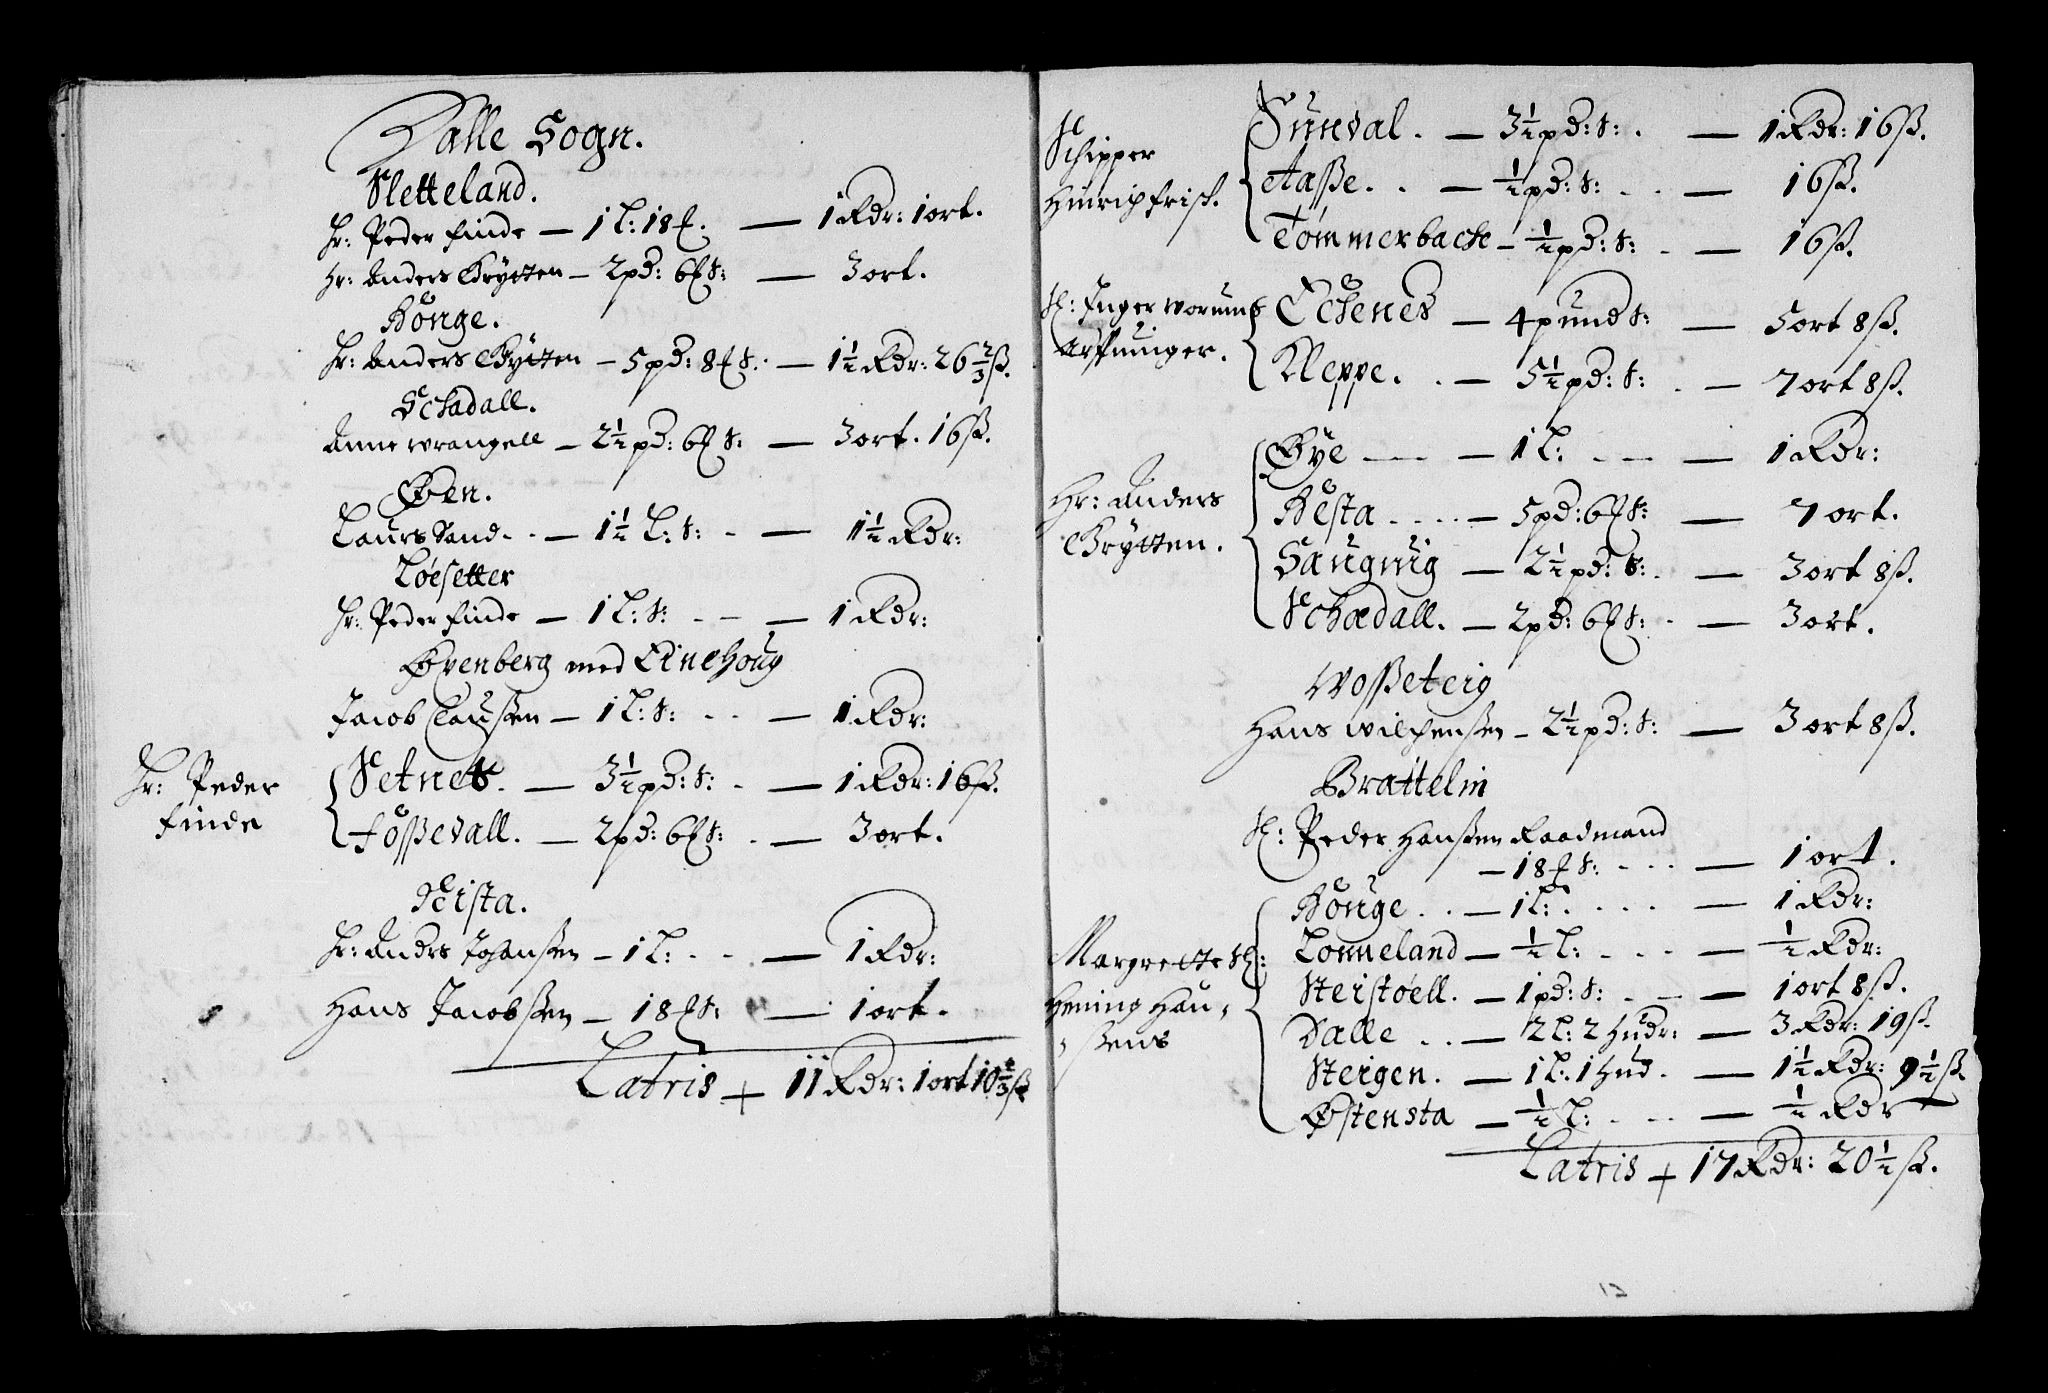 Dalle Sogn.
Sletteland.
Hr: Peder finde — 1 L: 18 ℔. — 1 Rdr: 1 ort.
Hr: Anders Brytten — 2 pd: 6 ℔ s: — 3 ort.
Hønge.
Hr: Anders Brytten — 5 pd: 8 ℔ s: — 1½ Rdr: 26⅔ ß.
Schadall.
Anne Wrangell — 2½ pd: 6 ℔ s: — 3 ort. 16 ß.
Øen.
Laurs Sand. - - — 1½ L: s: - — 1½ Rdr:
Løesetter
Hr: Peder finde — 1 L: s: - - — 1 Rdr:
Øvenberg med Einehoug
Jacob Claußen — 1 L: s: - - — 1 Rdr:
Hr: Peder finde
Setnes. — 3½ pd: s: - — 1 Rdr: 16 ß.
Fosßevall. — 2 pd: 6 ℔ s: - — 3 ort.
Neista.
Hr: Anders Johansßen — 1 L: - - — 1 Rdr:
Hans Jacobsßen — 18 ℔ s: — 1 ort.
Latris + 11 Rdr: 1 ort 10⅔ ß
Schipper
Hinrich frisch.
Sunval. — 3½ pd: s: - — 1 Rdr: 16 ß.
Aasße. - — ½ pd: s: - - — 16 ß.
Tømmerbache — ½ pd: s: - — 16 ß.
Sl: Inger Worums
Arffuinger.
Echenes — 4 pund s: — 5 ort 8 ß.
Kleppe. - — 5½ pd: s: - — 7 ort 8 ß.
Hr: Anders
Brytten.
Øye — — 1 L: - - — 1 Rdr:
Hesta - - - — 5 pd: 6 ℔ s: — 7 ort.
Saugnug — 2½ pd: s: - — 3 ort 8 ß.
Schadall. — 2 pd: 6 ℔ s: - — 3 ort.
Wosßeteig
Hans Wilchensßen — 2½ pd: s: — 3 ort 8 ß.
Brattelin
Sl: Peder Hansßen Raadmand
— 18 ℔ s: - - - — 1 ort.
Margrette Sl:
Hening Han-
sßens
Hønge. - — 1 L: - - - — 1 Rdr:
Lonneland — ½ L: - - - — ½ Rdr:
Steistøell. — 1 pd: s: - - — 1 ort 8 ß.
Dalle - - — 2 L: 2 hudr: — 3 Rdr: 19 ß.
Steigen. — 1 L: 1 hud. — 1½ Rdr: 9½ ß.
Østensta — ½ L: - - - — ½ Rdr
Latris + 17 Rdr: 20½ ß.